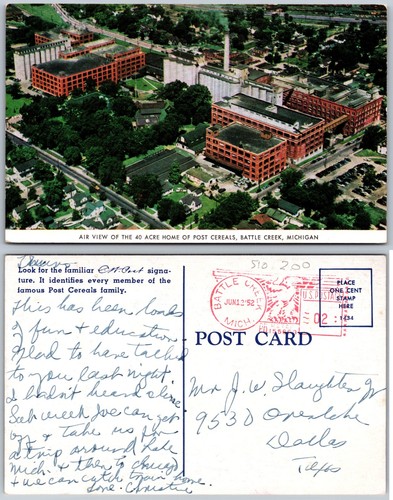 AIR VIEW OF THE 40 ACRE HOME OF POST CEREALS, BATTLE CREEK, MICHIGAN
Look for the familiar C.W. Post signa-
ture. It identifies every member of the
famous Post Cereals family.
This has been loads
of fun & education.
Glad to have talked
to you last night.
I didn't heard
week Joe can get
off & take us for
a trip around Lake
Mich. & then to Chicago
& we can catch train home.
Love. Christine
510.200
BATTLE CREEK
JUN 13 '52
MICH.
U.S. POSTAGE
02
PLACE
ONE CENT
STAMP
HERE
1434
POST CARD
Mr J. W. Slaughter Jr
9530
Dallas
Texas